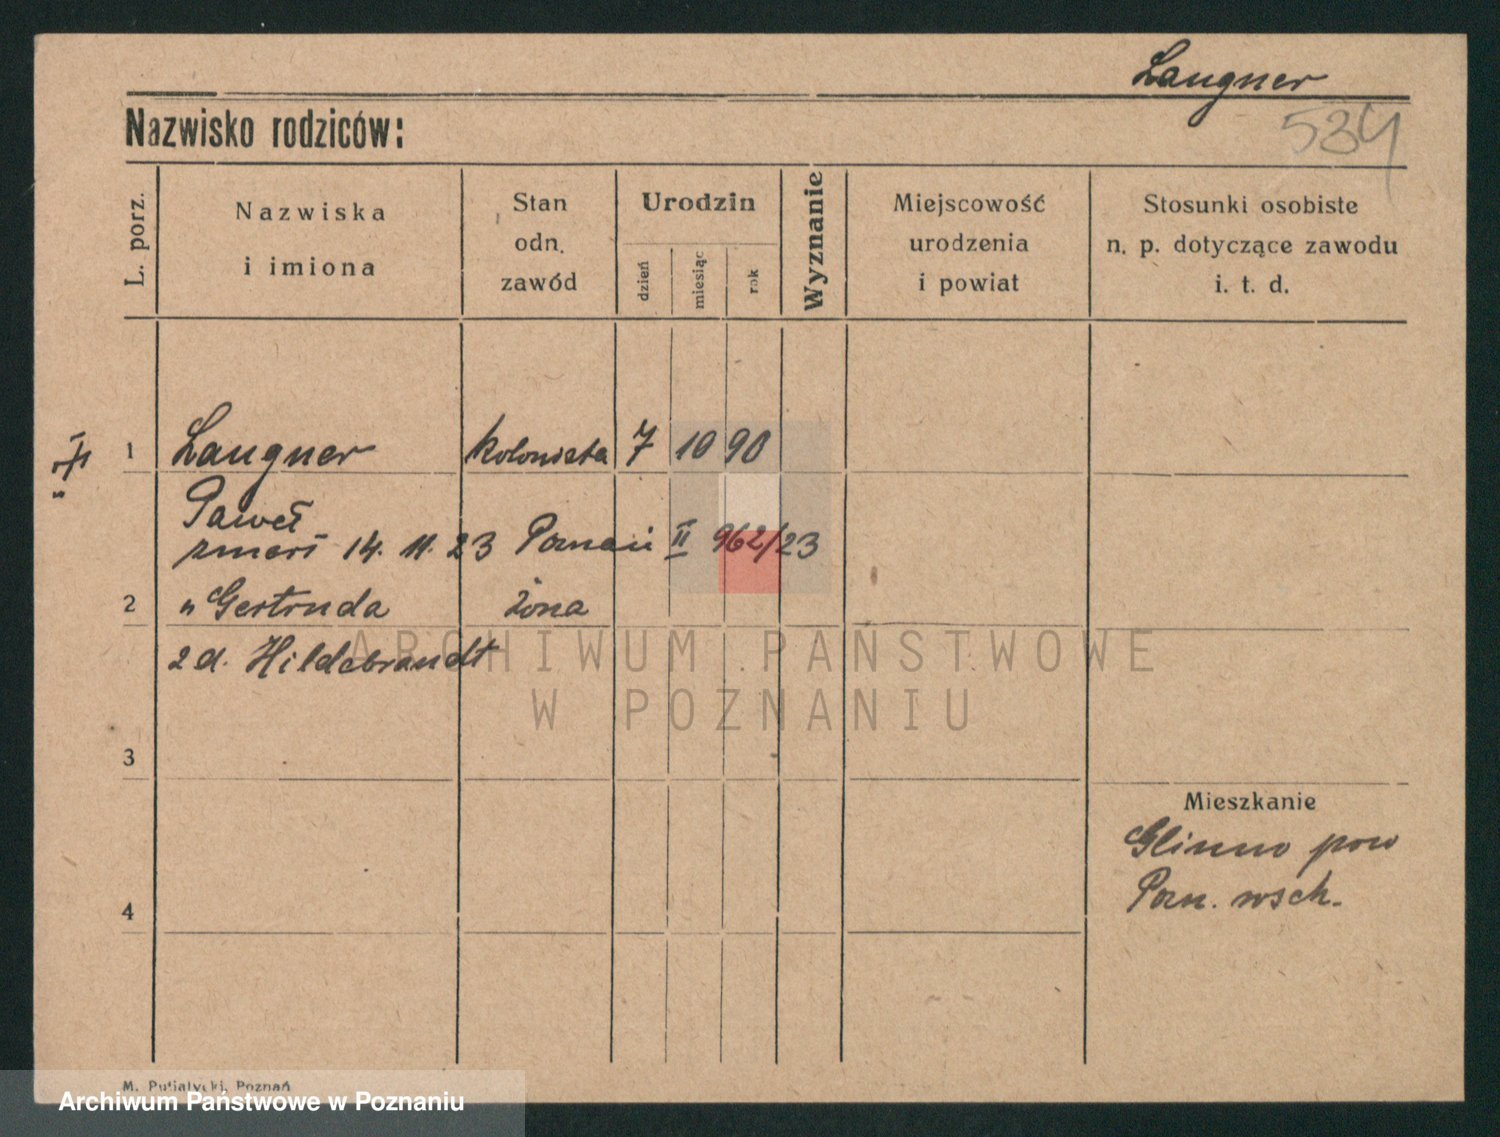 Langner
534
Nazwisko rodziców:
L. porz.
Nazwiska
i imiona
Stan
odn.
zawód
Urodzin
dzień
miesiąc
rok
Wyznanie
Miejscowość
urodzenia
i powiat
Stosunki osobiste
n. p. dotyczące zawodu
i. t. d.
1 Langner kolonista 7 10 90
Paweł
zmarł 14. 11. 23 Poznań II 962/23
2 " Gertruda żona
z d. Hildebrandt
3
Mieszkanie
Glinno pow
Pozn. wsch.
4
ARCHIWUM PAŃSTWOWE
W POZNANIU
M. Putiatycki, Poznań
Archiwum Państwowe w Poznaniu